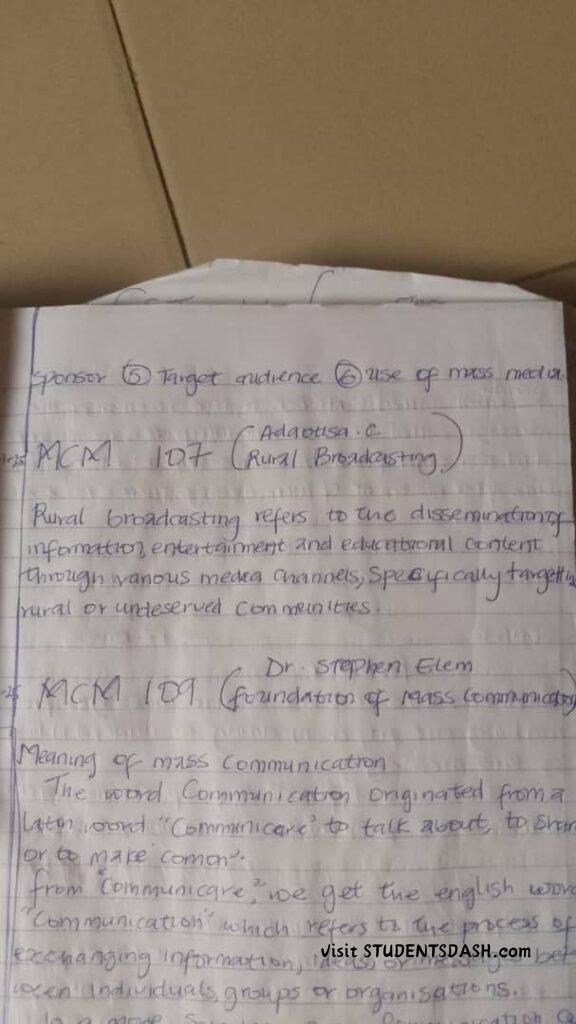 Sponsor ⑤ Target audience ⑥ use of mass media
MCM 107 (Adaobi .C
Rural Broadcasting)
Rural broadcasting refers to the dissemination of
information, entertainment and educational content
through various media channels, Specifically targetin
rural or undeserved communities.
Dr. Stephen Elem
MCM 109 (foundation of Mass Communication)
Meaning of mass communication
The word Communication originated from a
Latin word "Communicare" to talk about, to Share
or to make comon".
from "Communicare," we get the english word
"Communication" which refers to the process of
exchanging information, ideas, or messages bet-
ween individuals, groups or organisations.
In a more
visit STUDENTSDASH.com